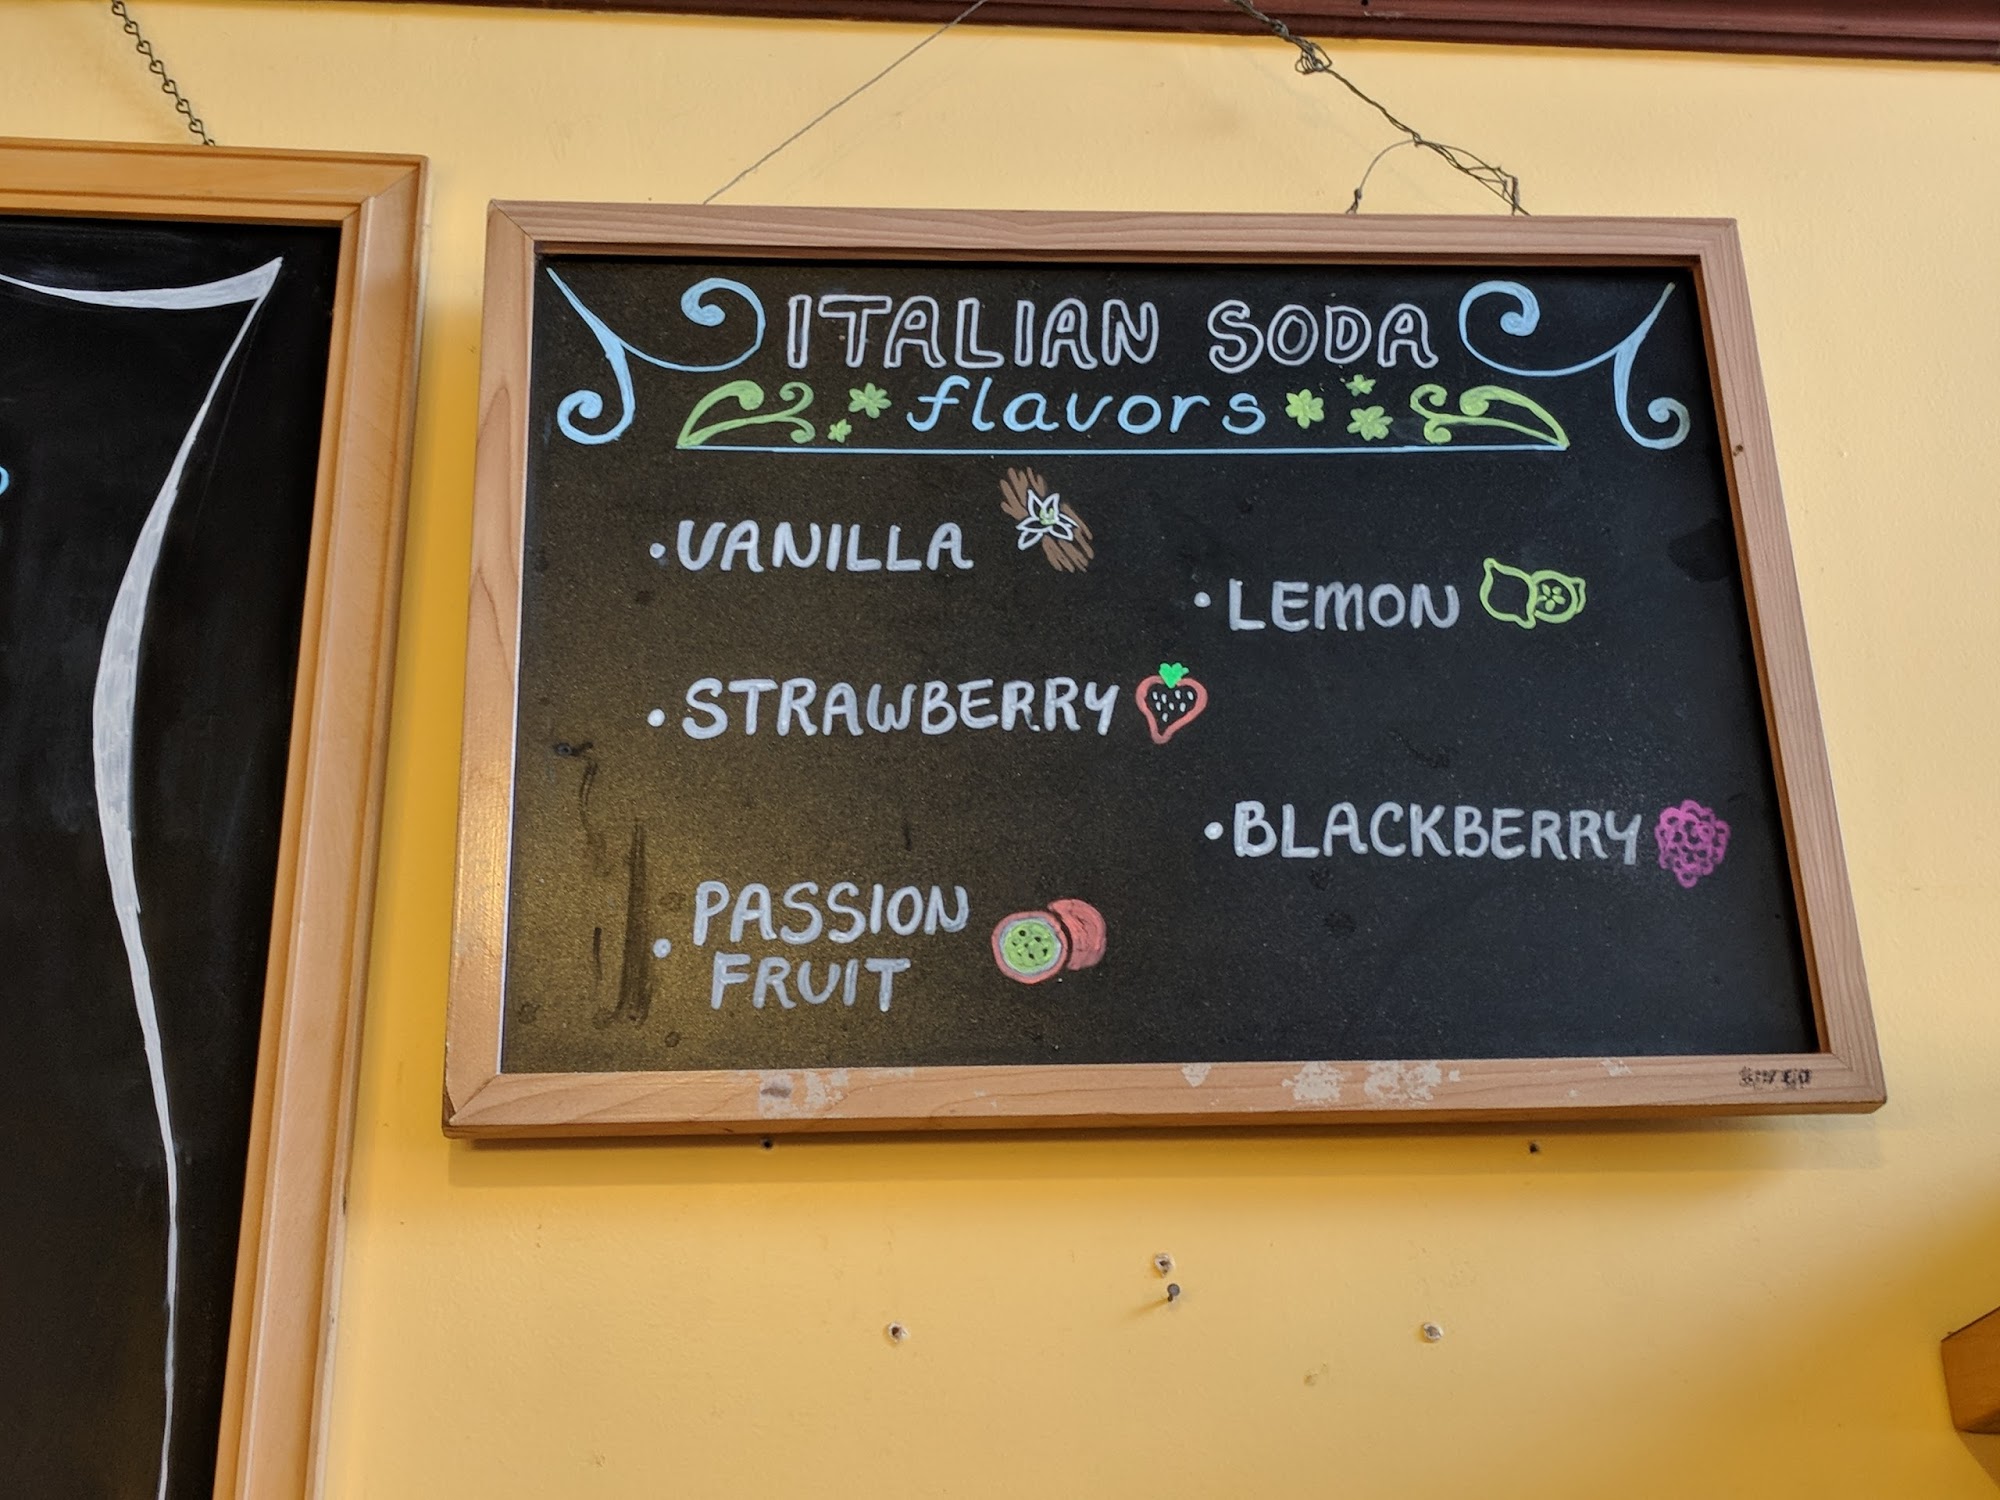 ITALIAN SODA
flavors
• VANILLA
• LEMON
• STRAWBERRY
• BLACKBERRY
• PASSION
FRUIT